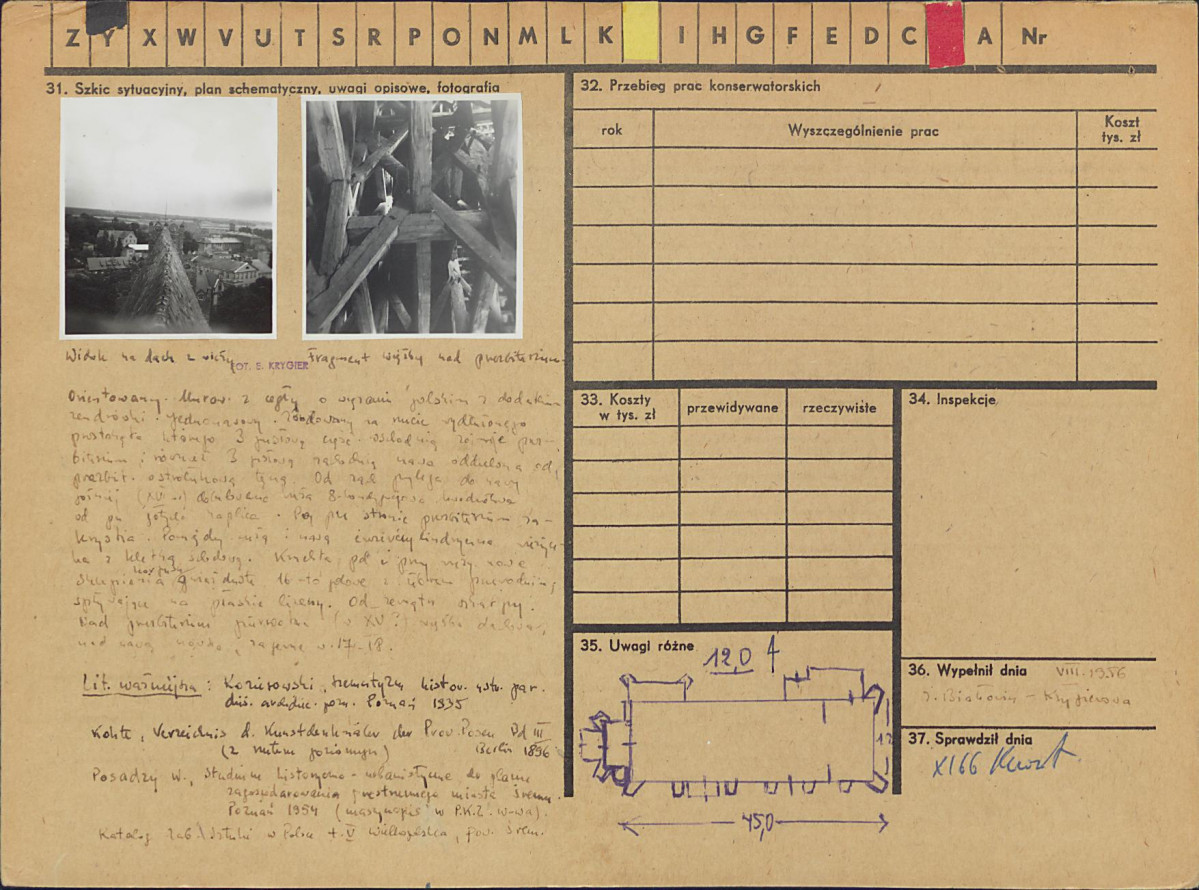 Z Y X W V U T S R P O N M L K I H G F E D C A Nr
31. Szkic sytuacyjny, plan schematyczny, uwagi opisowe, fotografia
Widok na dach z wieży
FOT. E. KRYGIER
Fragment więźby nad prezbiterium
Orientowany. Murow. z cegły o wiązaniu polskim z dodatkiem
zendrówki. Jednonawowy. Zbudowany na rzucie wydłużonego
prostokąta którego 3 przęsłową część wschodnią zajmuje prez-
biterium i również 3 przęsłową zachodnią nawa oddzielona od
prezbit. ostrołukową tęczą. Od zach. przylega do nawy
później (XVI w) dobudowana wieża 8-kondygnacjowa kwadratowa
od pn kaplica. Po pn stronie prezbiterium za-
krystia. Pomiędzy wieżą i nawą ćwierćcylindryczna wieżycz-
ka z klatką schodową.
na płaskie lizeny. Od zewnątrz skarpy.
Nad prezbiterium pierwotna (w XV?) więźba dachowa,
nad nawą nowsza, zapewne w. 17-18.
Lit. ważniejsza: Kozierowski, Szematyzm histor. ustr. par.
dzis. archidiec. pozn. Poznań 1935
Kohte, Verzeichnis d. Kunstdenkmäler der Prov. Posen Bd III
(z rzutem poziomym) Berlin 1896
Posadzy W., Studium historyczno-urbanistyczne do planu
zagospodarowania przestrzennego miasta Śremu.
Poznań 1954 (maszynopis w P.K.Z. W-wa).
Katalog Zab. Sztuki w Polsce t. V Wielkopolska, pow. Śrem.
32. Przebieg prac konserwatorskich
rok Wyszczególnienie prac Koszt
tys. zł
33. Koszty
w tys. zł przewidywane rzeczywiste
34. Inspekcje
35. Uwagi różne
12,0
12
45,0
36. Wypełnił dnia VIII.1956
Krygierowa
37. Sprawdził dnia
XI 66